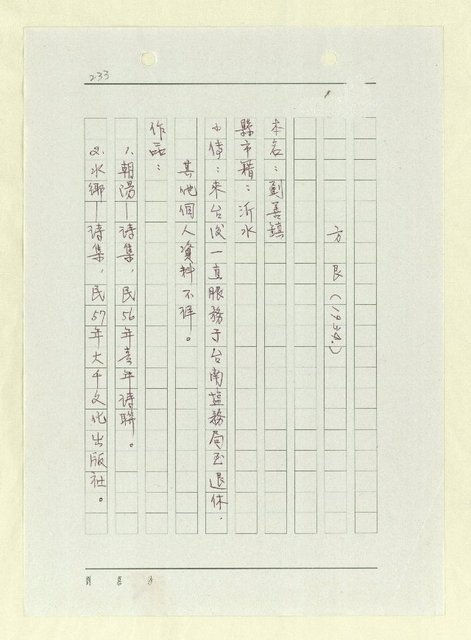 233
方艮(1649.)
本名：劉善鎮
縣市籍：沂水
小傳：來台後一直服務于台南塩務局至退休.
其他個人資料不詳。
作品：
1.朝陽—詩集，民56年青年詩聯。
2.水鄉—詩集，民57年大千文化出版社。
劉慕沙